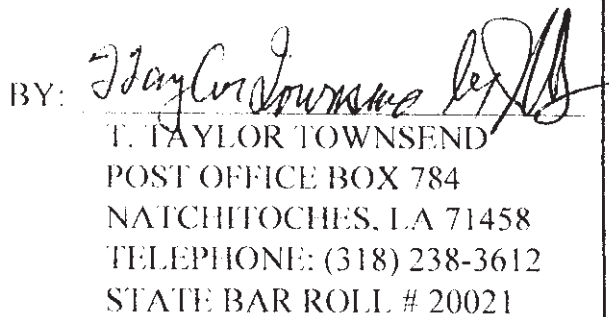 BY: T Taylor Townsend by
T. TAYLOR TOWNSEND
POST OFFICE BOX 784
NATCHITOCHES, LA 71458
TELEPHONE: (318) 238-3612
STATE BAR ROLL # 20021